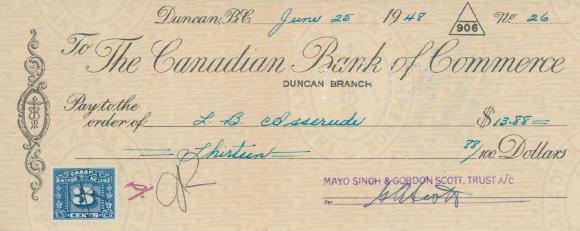 Duncan, B.C. June 25 1948 906 No. 26
To The Canadian Bank of Commerce
DUNCAN BRANCH
Pay to the
order of L. B. Asserude $13.88
Thirteen 88/100 Dollars
CANADA
EXCISE ACCISE
3
CENTS
MAYO SINGH & GORDON SCOTT, TRUST A/C
Per